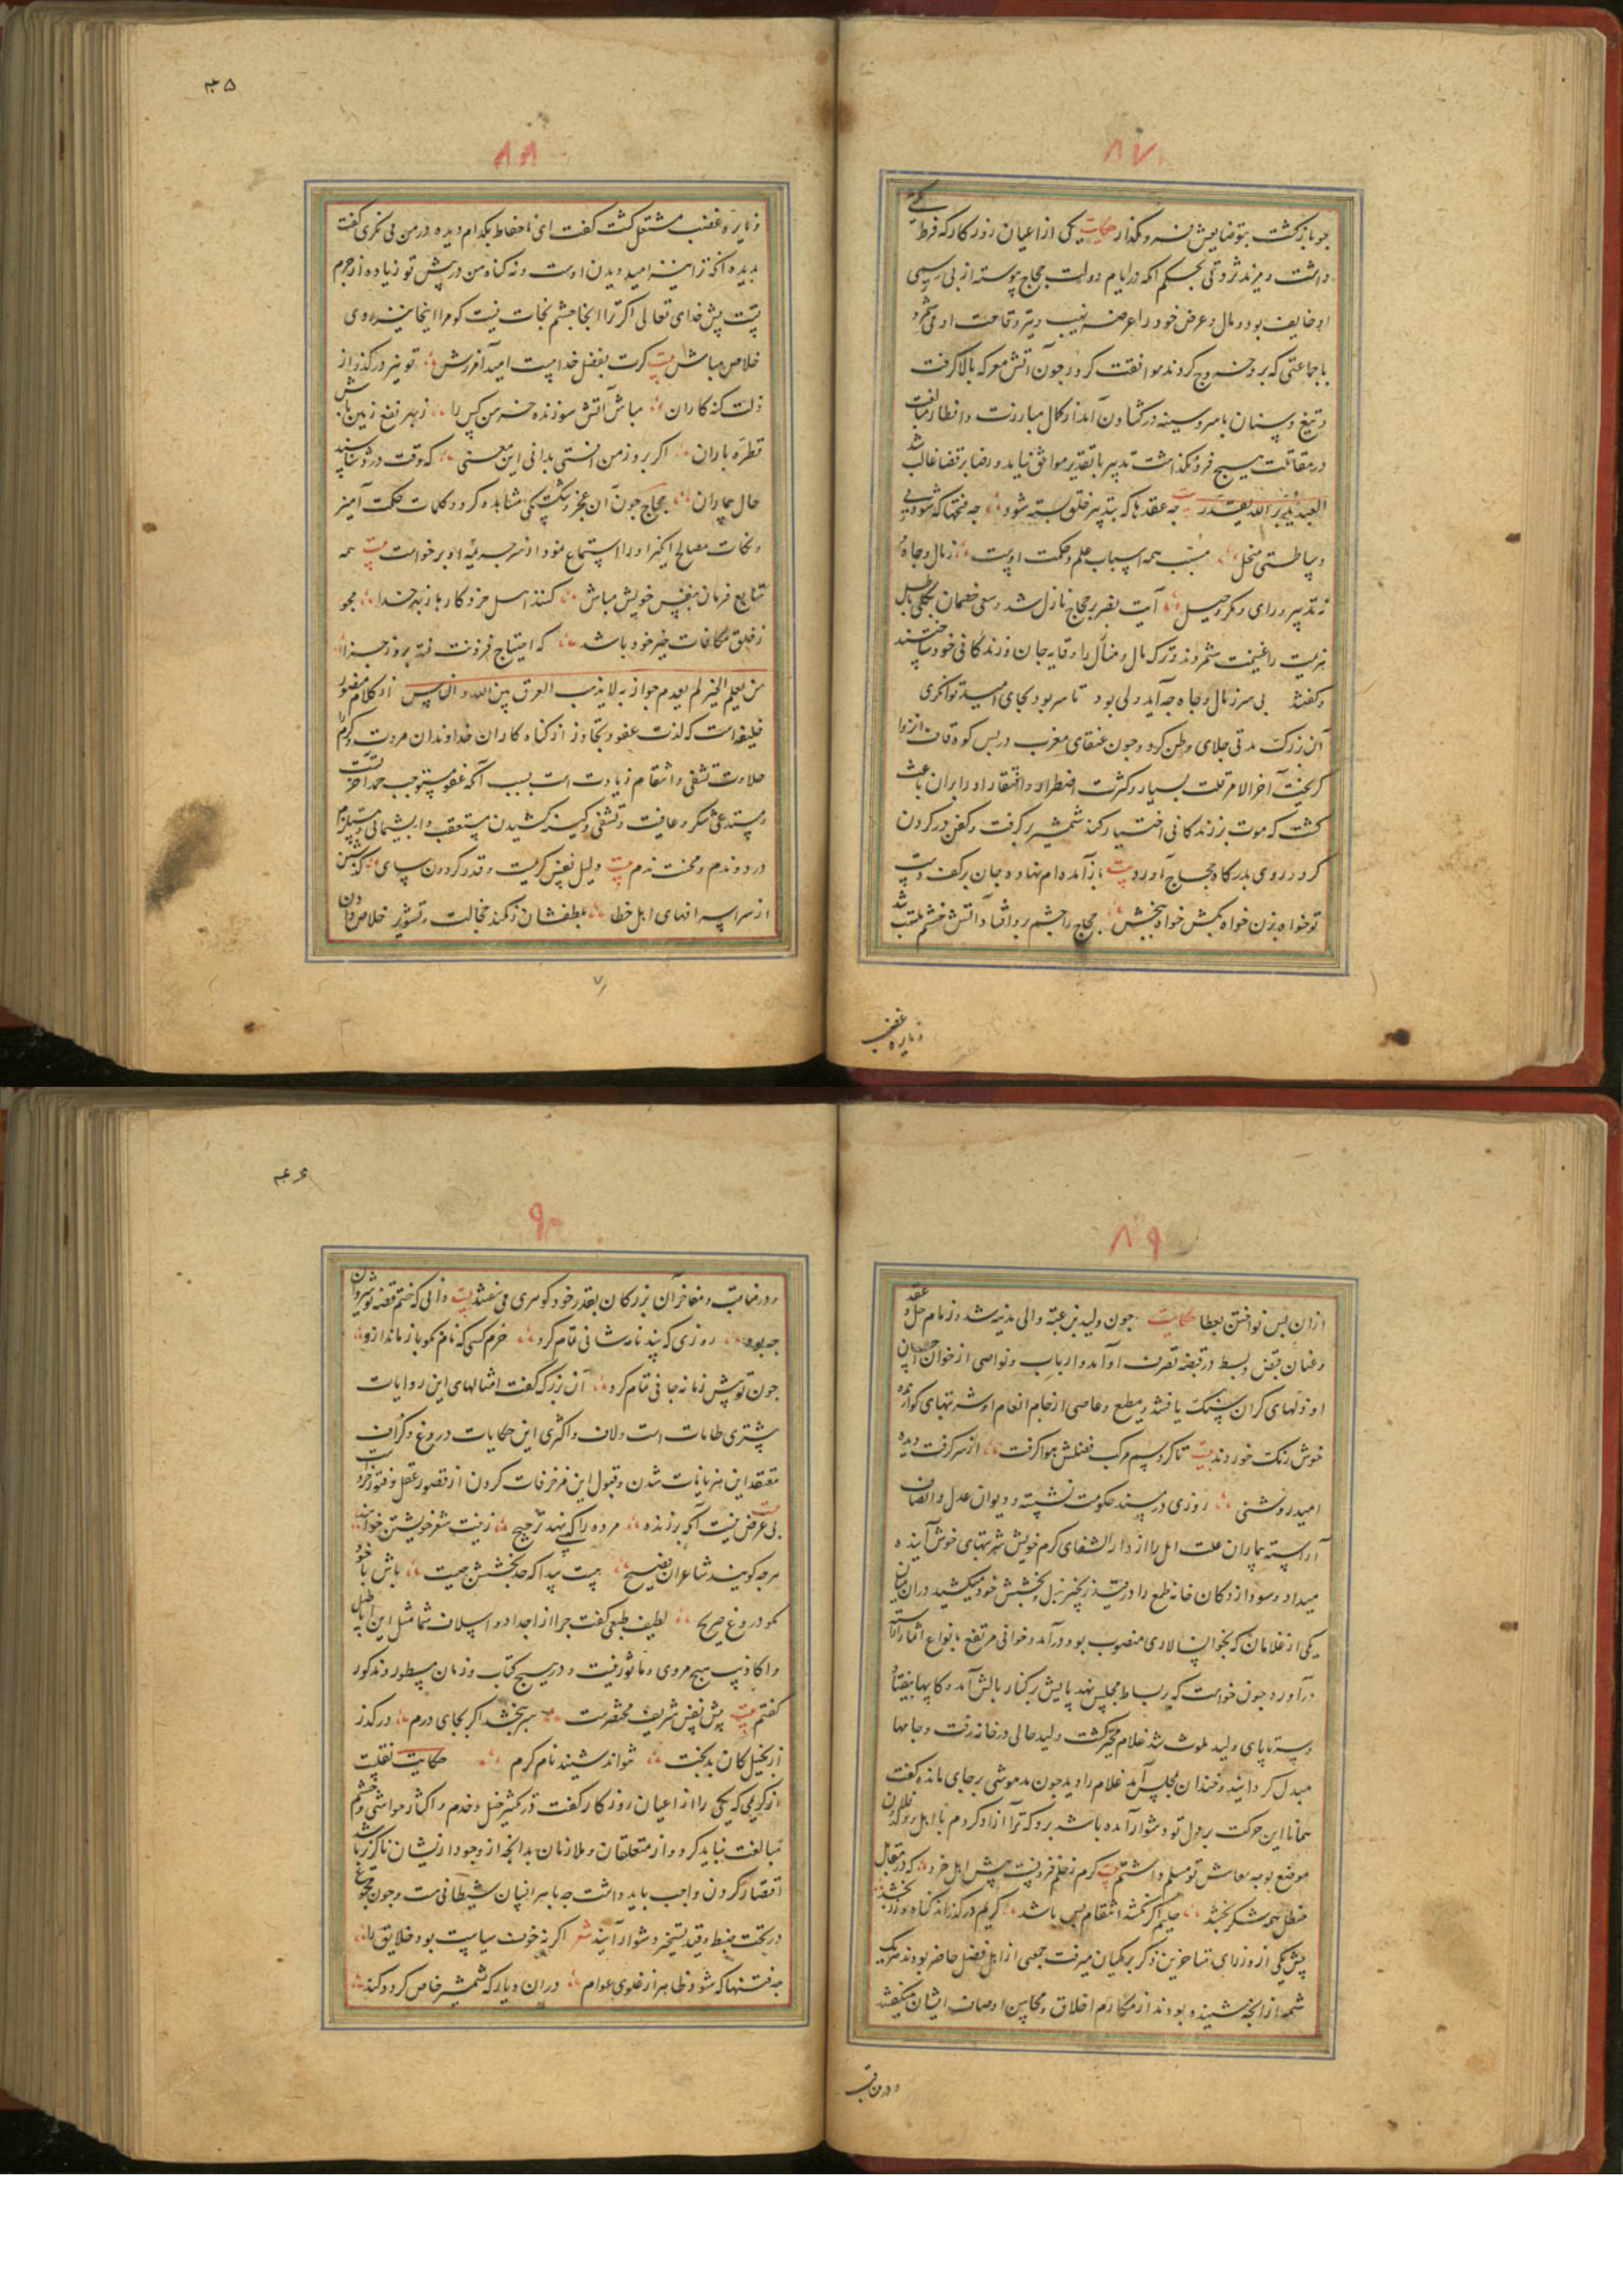 ۸۷
جو باز کشت بتوضایعش فرو مکذار حکایت یکی از اعیان روزکار که فرط
داشت و مزید ثروتی بحکم انکه در ایام دولت حجاج پیوسته از بی رسمی
او خایف بود و مال و عرض خود را عرضه نهیب و وقاحت او می شمرد
با جماعتی که بر وی خروج کردند موافقت کرد و چون آتش معرکه بالا کرفت
و تیغ و سنان با سر و سینه در کشاد آن آمد از کمال مبارزت و مبالغت
در مقاتلت هیچ فرو نکذاشت تدبیر با تقدیر موافق نیاید و رضا بر قضا غالب شد
العبد یدبر الله یقدر بیت چه عقدها که بتدبیر خلق بسته شود چه فتحها که شود بی
وساطتی منحل مسبب همه اسباب علم و حکمت اوست ز مال و جاه
نه تدبیر و رای و مکر و حیل آیت نصر بر حجاج نازل شد و سعی خصمان بکلی باطل
هزیمت را غنیمت شمردند و ترک مال و منال را وقایه جان و زندکانی خود ساختند
و کفتند بی سر ز مال و جاه چه آید ولی بود تا سر بود بجای امید توانکری
آن بزرک مدتی جلای وطن کرد و چون عنقای مغرب در پس کوه قاف انزوا
کریخت آخر الامر قلت یسار و کثرت اضطرار و افتقار او را بران باعث
کشت که موت بر زندکانی اختیار کند شمشیر بر کرفت و کفن در کردن
کرد و روی بدرکاه حجاج آورد بیت باز آمده ام نهاده جان بر کف دست
تو خواه بزن خواه بکش خواه ببخش حجاج را چشم برو افتاد آتش خشم ملتهب شد
و نایره غضب
۴۵
۸۸
و نایره غضب مشتعل کشت کفت ای ناحفاظ بکدام دیده در من می نکری کفت
بدیده آنکه ترا نیز امید دیدن اوست و نه کناه من در پیش تو زیاده از جرم
تست پیش خدای تعالی اکر ترا آنجا چشم نجات نیست کو مرا اینجا نیز روی
خلاص مباش بیت کرت بفضل خداست امید آمرزش تو نیز در کذر از
زلت کنه کاران مباش آتش سوزنده خرمن کس را ز بهر نفع زمین باش
قطره باران اکر بروز من افتی بدانی این معنی که وقت درد شناسند
حال بیماران حجاج چون آن عجز و شکستکی مشاهده کرد و کلمات حکمت آمیز
و نکات مصالح انکیز او را استماع نمود از سر جریمه او بر خواست بیت همه
متابع فرمان نفس خویش مباش کنند اهل خرد کارها ز بهر خدا مجو
ز خلق مکافات خیر خود باشد که احتیاج فزونت فتد بروز جزا
من یعلم الخیر لم یعدم جوازیه لا یذهب العرف بین الله و الناس از کلام منصور
خلیفه است که لذت عفو و تجاوز از کناه کاران خداوندان مروت و کرم را
حلاوت تشفی و انتقام زیادت است بسبب آنکه عفو مستوجب حمد آخرتست
و مستدعی شکر و عافیت و تشفی و کینه کشیدن مستعقب و ا پشیمانی و مستلزم
درد و ندم و محنت ندم بیت دلیل نفس کریمست و قدر کردون سای کذشتن
از سر اسرافهای اهل خطا بلطفشان ز کمند خجالت و تشویر خلاص دادن
۷
۸۹
از ان پس نواختن بعطا حکایت چون ولید بن عتبه والی مدینه شد و زمام حل و عقد
و عنان قبض و بسط در قبضه تصرف او آمد و ارباب و نواصی از خوان احسان
او نزلهای کران سنک یافتند و مطیع و عاصی از جام انعام او شربتهای کوارنده
خوش رنک خوردند بیت تا کرد سیم مرکب فضلش هوا کرفت از سر کرفت دیده
امید روشنی روزی در مسند حکومت نشسته و دیوان عدل و انصاف
آراسته بیماران علت امل را از دار الشفای کرم خویش شربتهای خوش آینده
میداد و سودا زدکان خانه طمع را در قید زنجیر بذل و بخشش خود میکشید دران میان
یکی از غلامان که بخوان سالاری منصوب بود در آمد و خوانی مرتفع بانواع اثمار آراسته
در آورد چون خواست که بر بساط مجلس نهد پایش بر کنار بالش آمد و کاسها بیفتاد
و سرتاپای ولید ملوث شد غلام متحیر کشت ولید حالی در خانه رفت و جامها
مبدل کردانید و خندان بمجلس آمد غلام را دید چون مدهوشی بر جای مانده کفت
همانا این حرکت بر دل تو دشوار آمده باشد برو که ترا آزاد کردم با اهل و فلان
موضع بوجه معاش تو مسلم داشتم بیت کرم ز ظلم فزونست پیش اهل خرد که در مقابل
حنظل همه شکر بخشد حلیم اکر نکشد انتقام بس باشد کریم در کذراند کناه و زر بخشد
پیش یکی از وزرای متاخرین ذکر برمکیان میرفت جمعی از اهل فضل حاضر بودند هر یک
شمه از انچه شنیده بودند از مکارم اخلاق و محاسن اوصاف ایشان میکفتند
و در مناقب
۴۶
۹۰
و در مناقب و مفاخر آن بزرکان بقدر خود کوهری می سفتند بیت دانی که ختم قصه نوشیروان
چه بود روزی که پند نامه شانی تمام کرد خرم کسی که نام نکو باز ماند ازو
چون تو پیش زمانه جانی تمام کرد آن بزرک کفت امثالهای این روایات
بیشتری طامات است و لاف و اکثری این حکایات دروغ و کزاف
معتقد این هذیانات شدن و قبول این مزخرفات کردن از قصور عقل و فتور خرد است
بیت بی غرض نیست آنکه بر زنده مرده را کسی نهد ترجیح زینت شعر خویشتن خواهند
هرچه کویند شاعران فصیح هست پیدا که حد بخشش چیست باش با خود
مکو دروغ صریح لطیف طبعی کفت چرا از اجداد و اسلاف شما مثل این اباطیل
و اکاذیب هیچ مروی و ماثور نیست و در هیچ کتاب و زمان مسطور و مذکور
کفتم بیت پیش نفس شریف مختصرست سر ببخشد اکر بجای درم در کذر
از بخیل کان بدبخت نتواند شنید نام کرم حکایت نقلست
از کریمی که یکی را از اعیان روزکار کفت در تکثیر خیل و خدم و اکثار حواشی و حشم
مبالغت نباید کرد و از متعلقان و ملازمان بدانچه از وجود ایشان ناکزر باشد
اقتصار کردن واجب باید داشت چه با هر انسان شیطانی است و چون مجموع
در تحت ضبط و قید تسخیر دشوار آیند شعر اکر نه خوف سیاست بود خلایق را
چه فتنها که شود ظاهر از غلوی عوام دران دیار که شمشیر خاص کردد کند